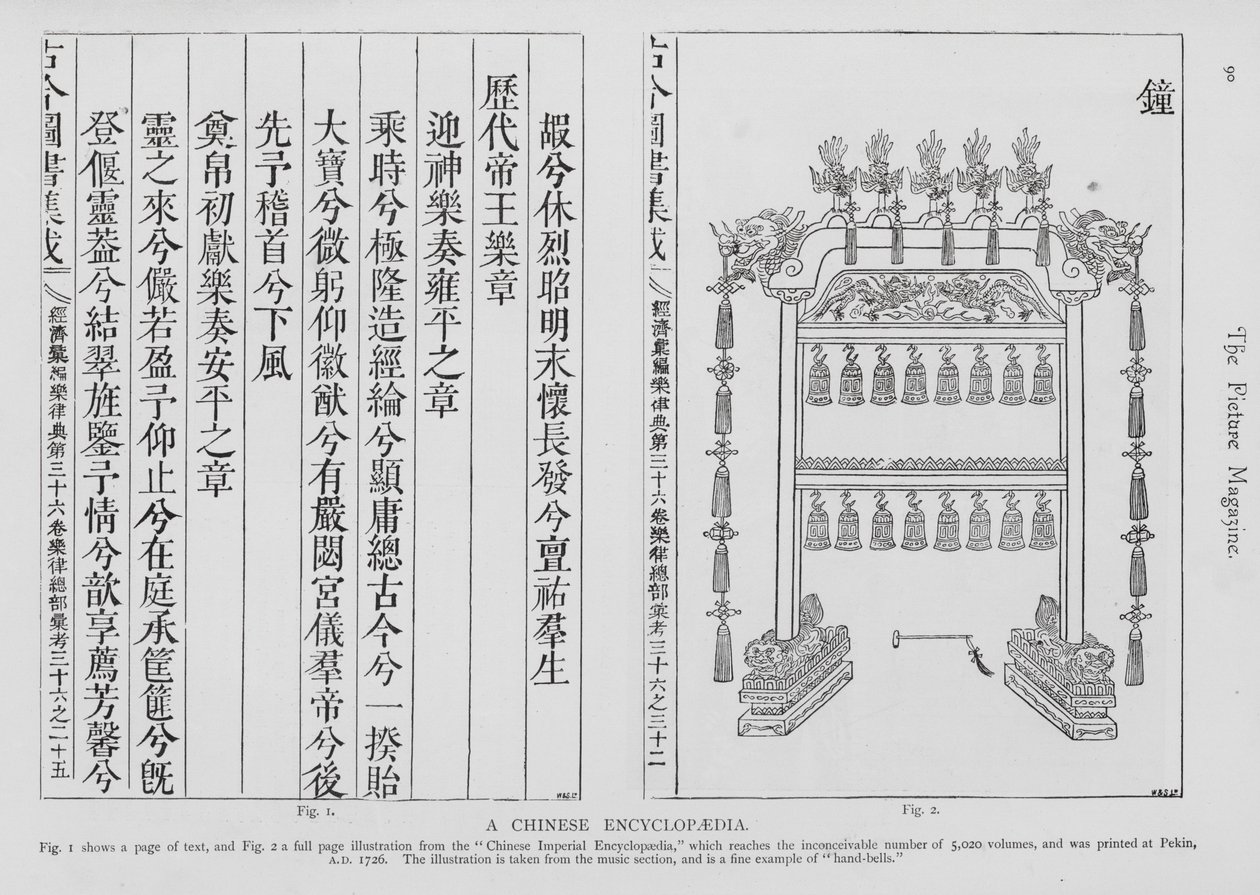 嘏兮休烈昭明末懷長發兮亶祐羣生
歷代帝王樂章
迎神樂奏雍平之章
乘時兮極隆造經綸兮顯庸總古今兮一揆貽
大寶兮微躬仰徽猷兮有嚴閟宮儀羣帝兮後
先予稽首兮下風
奠帛初獻樂奏安平之章
靈之來兮儼若盈予仰止兮在庭承筐篚兮旣
登偃靈葢兮結翠旌鑒予情兮歆享薦芳馨兮
古今圖書集成 經濟彙編樂律典第三十六卷樂律總部彙考三十六之二十五
W&S.Ld
Fig. 1.
鐘
古今圖書集成 經濟彙編樂律典第三十六卷樂律總部彙考三十六之三十二
W&S.Ld
Fig. 2.
90
The Picture Magazine.
A CHINESE ENCYCLOPÆDIA.
Fig. 1 shows a page of text, and Fig. 2 a full page illustration from the “Chinese Imperial Encyclopædia,” which reaches the inconceivable number of 5,020 volumes, and was printed at Pekin,
A.D. 1726. The illustration is taken from the music section, and is a fine example of “hand-bells.”